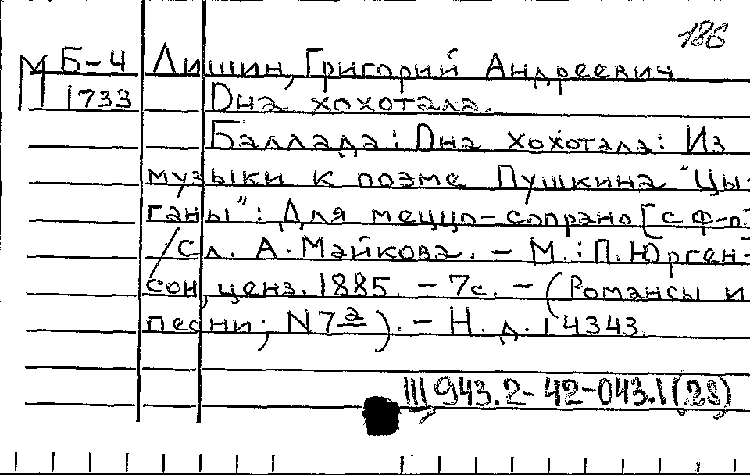 186
М Б-4 Лишин, Григорий Андреевич
1733 Она хохотала.
Баллада: Она хохотала: Из
музыки к поэме Пушкина "Цы-
ганы": Для меццо-сопрано [с ф-п.
/ Сл. А. Майкова. - М.: П. Юрген-
сон, ценз. 1885. - 7с. - (Романсы и
песни; N 7а). - Н. д. 14343.
III 943.2-42-043.1(28)